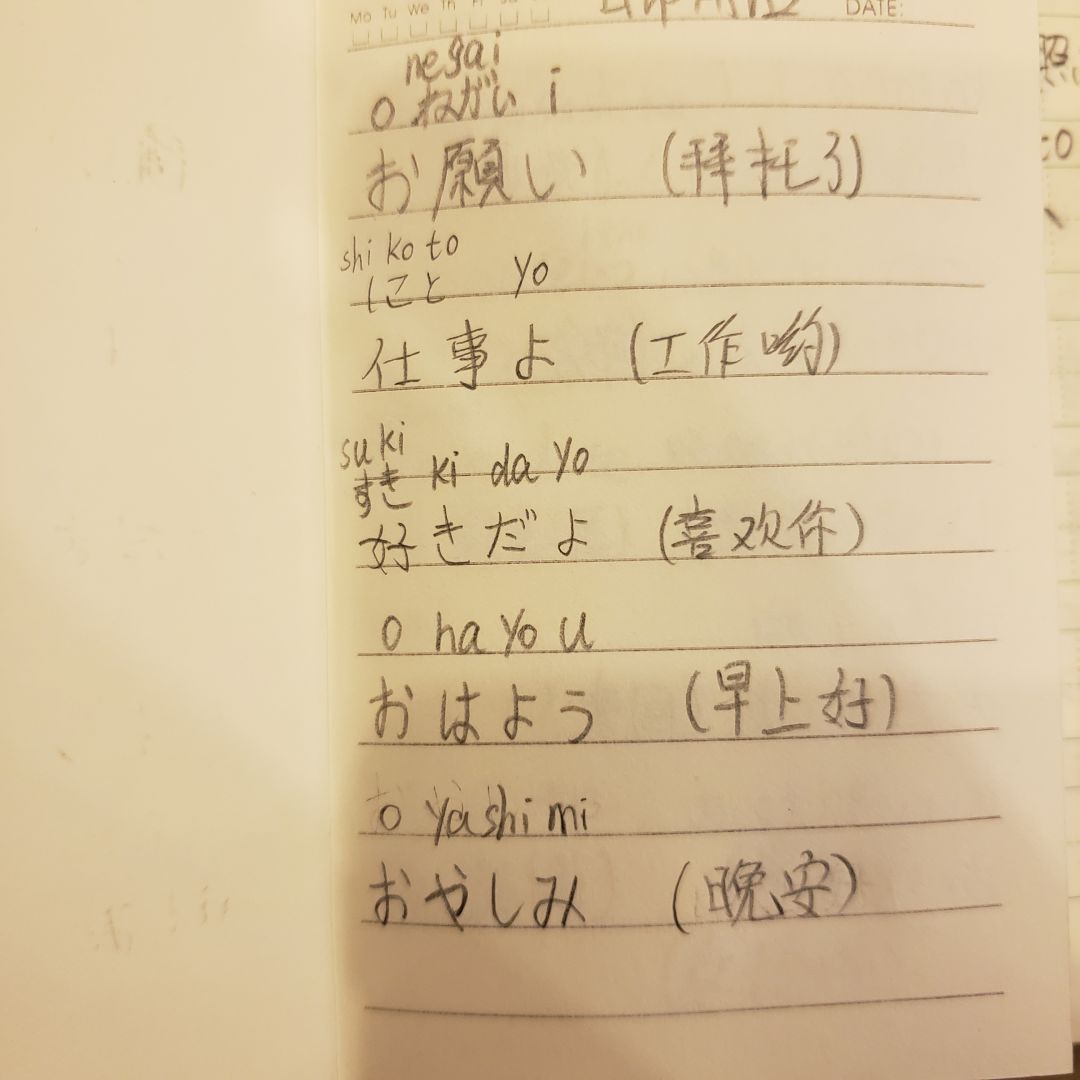 Mo Tu We Th Fr Sa
DATE:
negai
o ねがい i
お願い (拜托了)
shi ko to
しごと yo
仕事よ (工作哟)
suki
すき ki da yo
好きだよ (喜欢你)
o ha yo u
おはよう (早上好)
o ya shi mi
おやしみ (晚安)